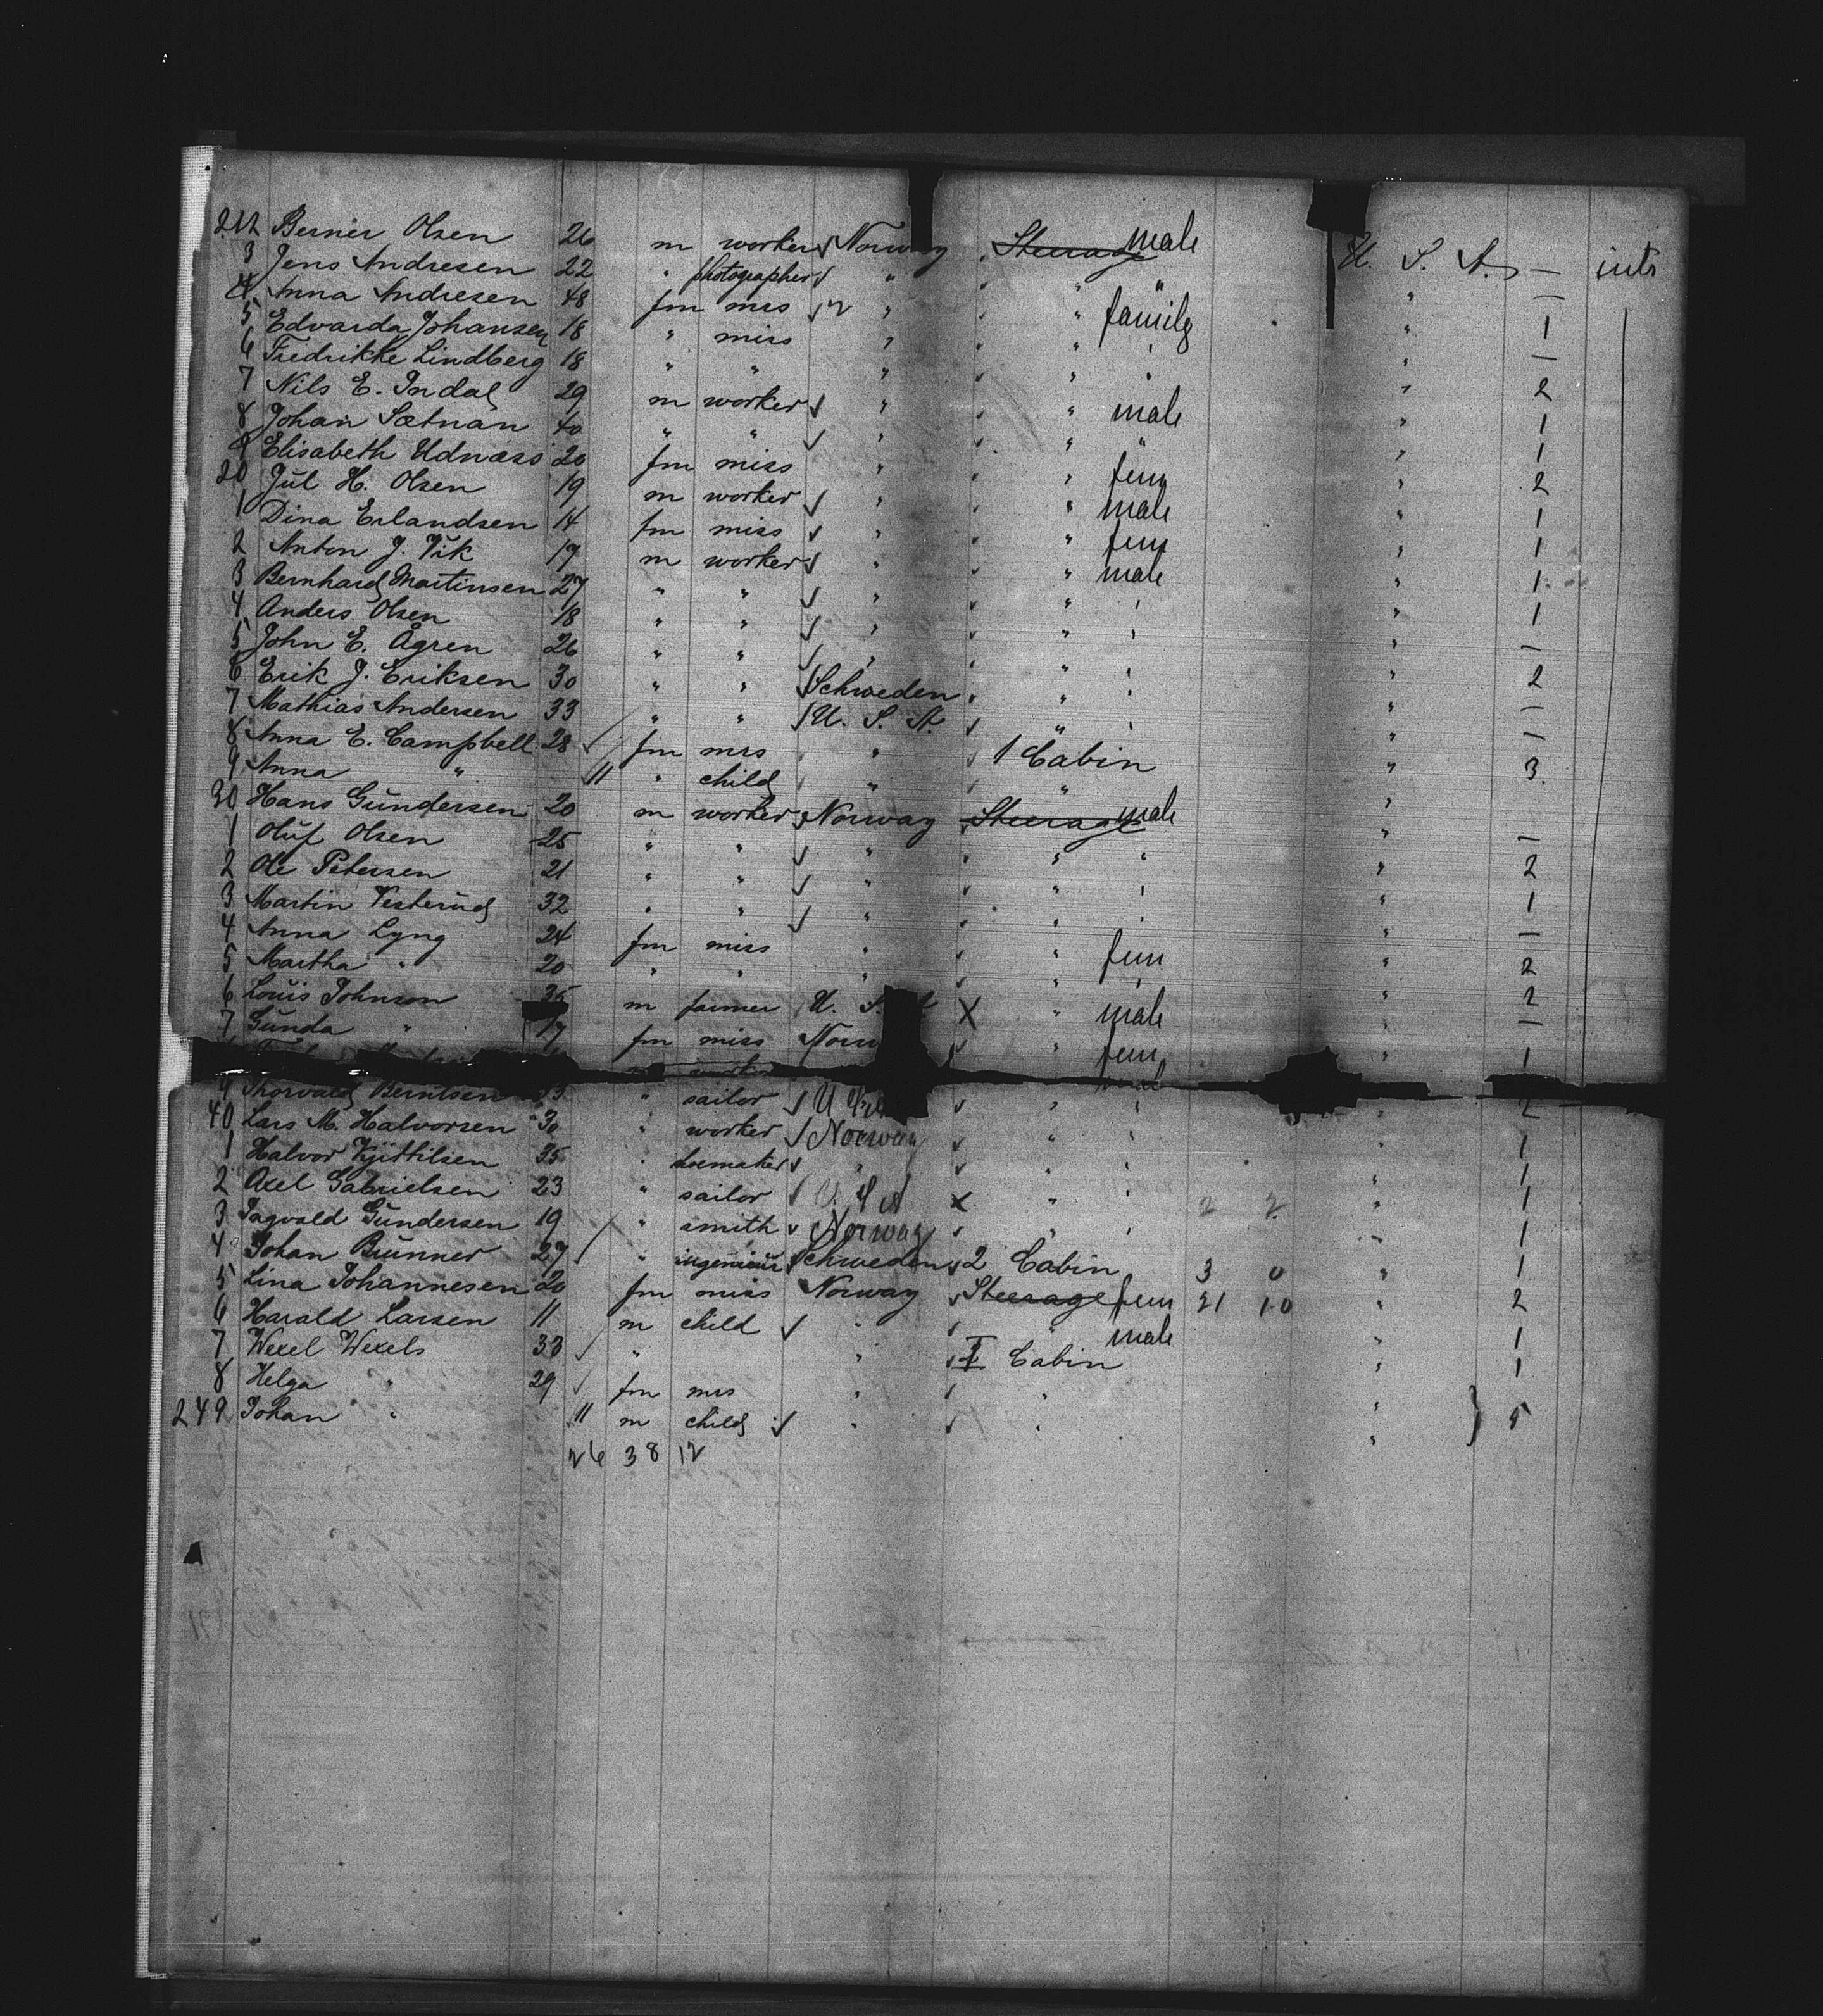 212 Berner Olsen 26 m worker Norway Steerage male U. S. A. — ints
3 Jens Andresen 22 " photographer " " " " —
4 Anna Andresen 48 fm mrs 2 " " family " 1
5 Edvarda Johansen 18 " miss " " " " —
6 Fredrikke Lindberg 18 " " " " " " 2
7 Nils E. Indal 29 m worker " " male " 1
8 Johan Sætnan 40 " " " " " " 1
9 Elisabeth Udnæss 20 fm miss " " fem " 2
20 Jul H. Olsen 19 m worker " " male " 1
1 Dina Erlandsen 14 fm miss " " fem " 1
2 Anton J. Vik 17 m worker " " male " 1
3 Bernhard Martinsen 27 " " " " " " 1
4 Anders Olsen 18 " " " " " " —
5 John E. Ågren 26 " " " " " " 2
6 Erik J. Eriksen 30 " " Schweden " " " —
7 Mathias Andersen 33 " " U. S. A. " " " —
8 Anna E. Campbell 28 fm mrs " 1 Cabin " 3
9 Anna " 11 " child " " "
30 Hans Gundersen 20 m worker Norway Steerage male " —
1 Oluf Olsen 25 " " " " " " 2
2 Ole Petersen 21 " " " " " " 1
3 Martin Vesterud 32 " " " " " " —
4 Anna Lyng 24 fm miss " " fem " 2
5 Martha " 20 " " " " " " 2
6 Louis Johnson 35 m farmer U. S. " male " —
7 Gunda " 17 fm miss Norw " fem " 1
worker
9 Thorvald Berntsen 33 " sailor U " " 2
40 Lars M. Halvorsen 30 " worker Norway " " " 1
1 Halvor Kjittilsen 35 " shoemaker " " " " 1
2 Axel Gabrielsen 23 " sailor U S A " " 2 2 " 1
3 Ingvald Gundersen 19 " smith Norway " " " 1
4 Johan Brunner 27 " ingenieur Schweden 2 Cabin 3 0 " 1
5 Lina Johannesen 20 fm miss Norway Steerage fem 21 10 " 2
6 Harald Larsen 11 m child " " male " 1
7 Wexel Wexels 33 " " I Cabin " 1
8 Helga " 29 fm mrs " " "
249 Johan " 11 m child " " " } 5
26 38 12